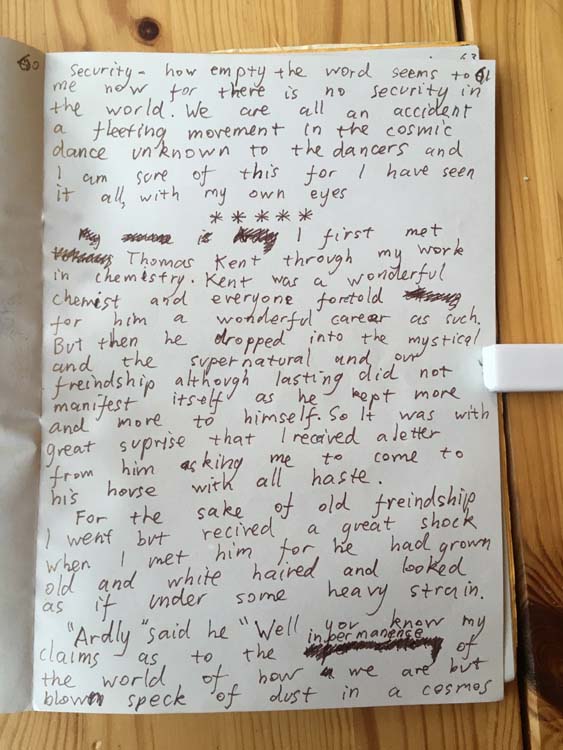 60
63
61
Security - how empty the word seems to
me now for there is no security in
the world. We are all an accident
a fleeting movement in the cosmic
dance unknown to the dancers and
I am sure of this for I have seen
it all, with my own eyes
* * * * *
I first met
Thomas Kent through my work
in chemistry. Kent was a wonderful
chemist and everyone foretold
for him a wonderful career as such.
But then he dropped into the mystical
and the supernatural and our
freindship although lasting did not
manifest itself as he kept more
and more to himself. So It was with
great suprise that I received a letter
from him asking me to come to
his house with all haste.
For the sake of old freindship
I went but recived a great shock
when I met him for he had grown
old and white haired and looked
as if under some heavy strain.
"Ardly" said he "Well you know my
claims as to the inpermanense of
the world of how we are but
blown speck of dust in a cosmos